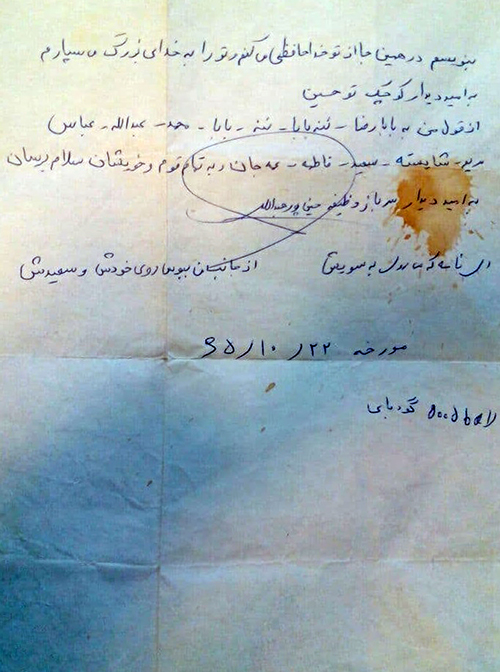 بنویسم در همین جا از تو خداحافظی می کنم و تو را به خدای بزرگ می سپارم
به امید دیدار کوچک تو حسین
از قول من به بابا رضا - ننه بابا - ننه - بابا - محمد - عبدالله - عباس
مریم - شایسته - سعید - فاطمه - عمه جان و به تمام قوم و خویشان سلام برسان
به امید دیدار سرباز وظیفه
ای نامه که می روی به سویش از جانب من ببوس روی خودش و سعیدش
مورخه ۲۲/۱۰/۶۵